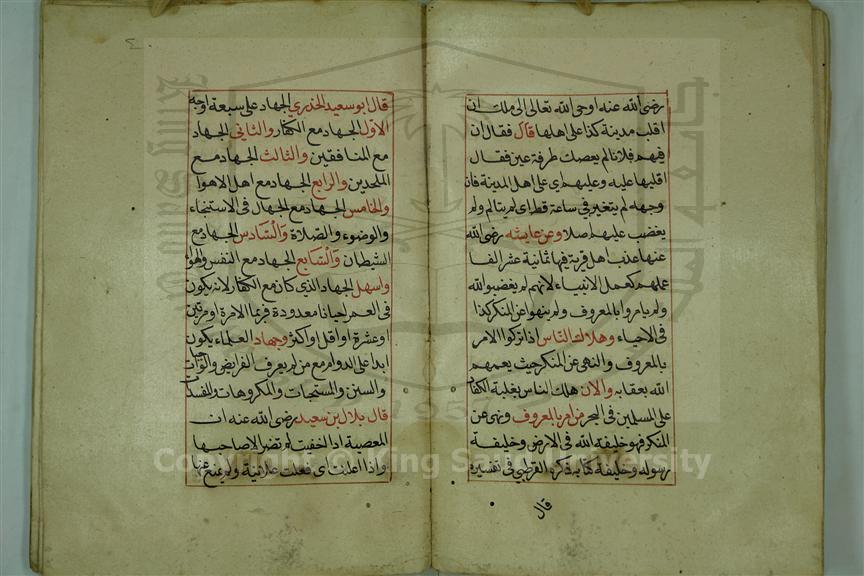 رضى الله عنه اوحى الله تعالى الى ملك ان
اقلب مدينة كذا على اهلها قال فقال ان
فيهم فلانا لم يعصك طرفة عين فقال
اقلبها عليه وعليهم اى على اهل المدينة فان
وجهه لم يتغير فى ساعة قط اى لم يتالم ولم
يغضب عليهم اصلا وعن عايشه رضى الله
عنها عذب اهل قرية فيها ثمانية عشر الفا
عملهم كعمل الانبياء لانهم لم يغضبوا لله
ولم يامروا بالمعروف ولم ينهوا عن المنكر كذا
فى الاحياء وهلاك الناس اذا تركوا الامر
بالمعروف والنهى عن المنكر حيث يعمهم
الله بعقابه والان هلك الناس بغلبة الكفار
على المسلمين فى البحر من امر بالمعروف ونهى عن
المنكر فهو خليفة الله فى الارض وخليفة
رسوله وخليفة كتابه ذكره القرطبى فى تفسيره
قال
قال ابو سعيد الخدري الجهاد على سبعة اوجه
الاول الجهاد مع الكفار والثانى الجهاد
مع المنافقين والثالث الجهاد مع
الملحدين والرابع الجهاد مع اهل الاهوا
والخامس الجهاد مع الجهال فى الاستنجاء
والوضوء والصلاة والسادس الجهاد مع
الشيطان والسابع الجهاد مع النفس والهوا
واسهل الجهاد الذى كان مع الكفار لانه يكون
فى العمر احيانا معدودة فربما الامرة او مرتين
او عشرة او اقل او اكثر وجهاد العلماء يكون
ابدا على الدوام مع من لم يعرف الفرايض والواجبات
والسنن والمستحبات والمكروهات والمفسدات
قال بلال بن سعيد رضى الله عنه ان
المعصية اذا اخفيت لم تضر الا صاحبها
واذا اعلنت اى فعلت علانية ولم يمنع عنها
Copyright © King Saud University
1957